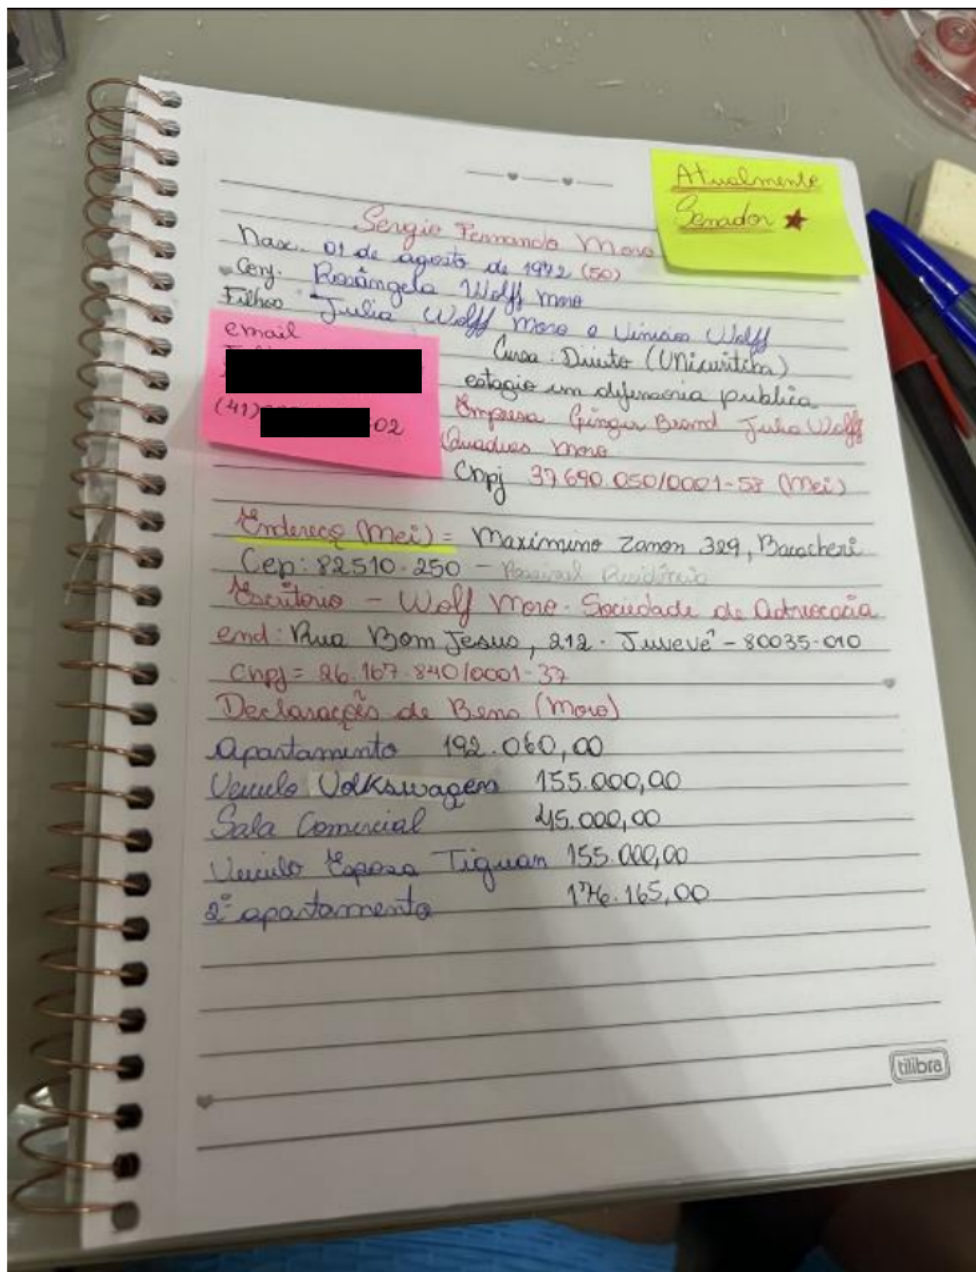 Atualmente
Senador ★
Sergio Fernando Moro
Nasc. 01 de agosto de 1972 (50)
Conj. Rosângela Wolff Moro
Filhos: Julia Wolff Moro e Vinicius Wolff
email
(41) 02
Cursa: Direito (Unicuritiba)
estagio em defensoria publica
Empresa Ginger Brand Julia Wolff
Quadros Moro
Cnpj 37.690.050/0001-58 (Mei)
Endereço (Mei) = Maximino Zanon 329, Bacacheri
Cep: 82510-250 - Possivel Residência
Escritorio - Wolf Moro. Sociedade de advocacia
end: Rua Bom Jesus, 212 - Juvevê - 80035-010
Cnpj = 26.167.840/0001-37
Declaração de Bens (Moro)
Apartamento 192.060,00
Veiculo Volkswagen 155.000,00
Sala Comercial 45.000,00
Veiculo Esposa Tiguan 155.000,00
2º apartamento 176.165,00
tilibra